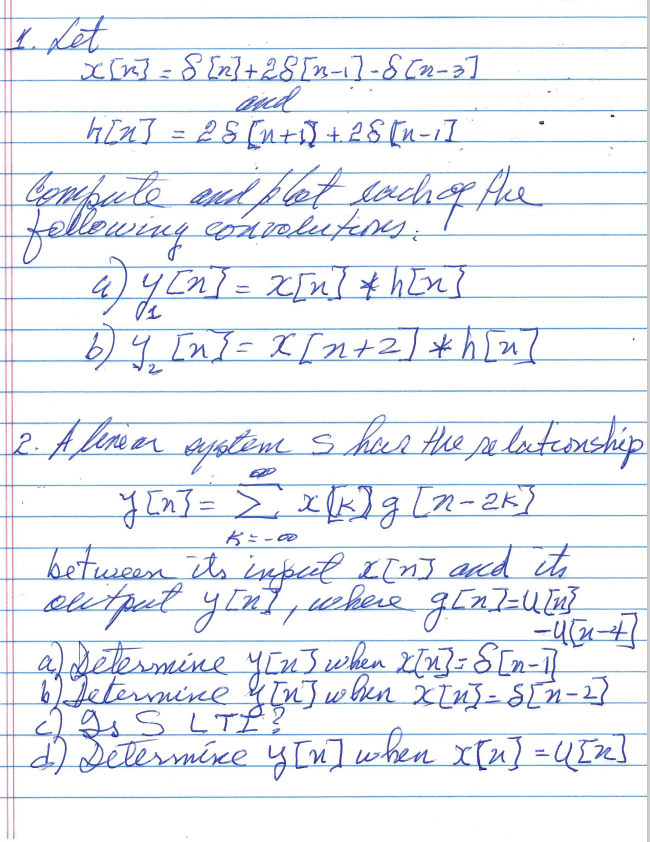 1. Let
x[n] = δ[n]+2δ[n-1]-δ[n-3]
and
h[n] = 2δ[n+1]+2δ[n-1]
Compute and plot each of the
following convolutions:
a) y₁[n] = x[n] * h[n]
b) y₂[n] = x[n+2] * h[n]
2. A linear system S has the relationship
∞
y[n] = Σ x[k] g[n-2k]
k=-∞
between its input x[n] and its
output y[n], where g[n]=u[n]
-u[n-4]
a) Determine y[n] when x[n]=δ[n-1]
b) Determine y[n] when x[n]=δ[n-2]
c) Is S LTI?
d) Determine y[n] when x[n]=u[n]